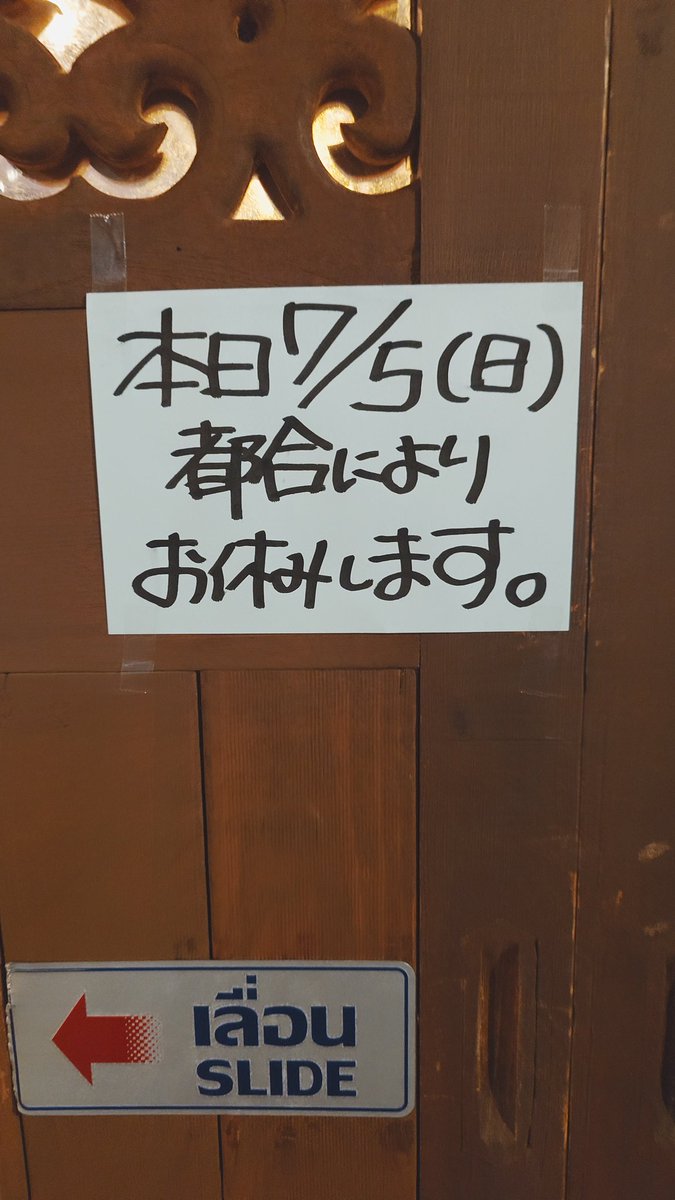 本日7/5(日)
都合により
お休みします。
เลื่อน
SLIDE